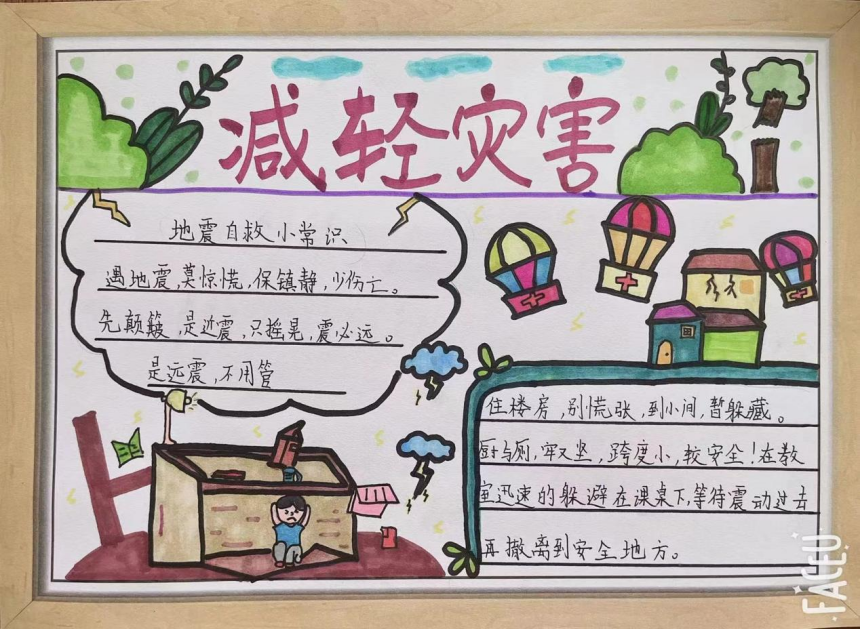 减轻灾害
地震自救小常识
遇地震,莫惊慌,保镇静,少伤亡。
先颠簸,是近震,只摇晃,震必远。
是远震,不用管
住楼房,别慌张,到小间,暂躲藏。
厨与厕,牢又坚,跨度小,较安全!在教
室迅速的躲避在课桌下,等待震动过去
再撤离到安全地方。
FACEU